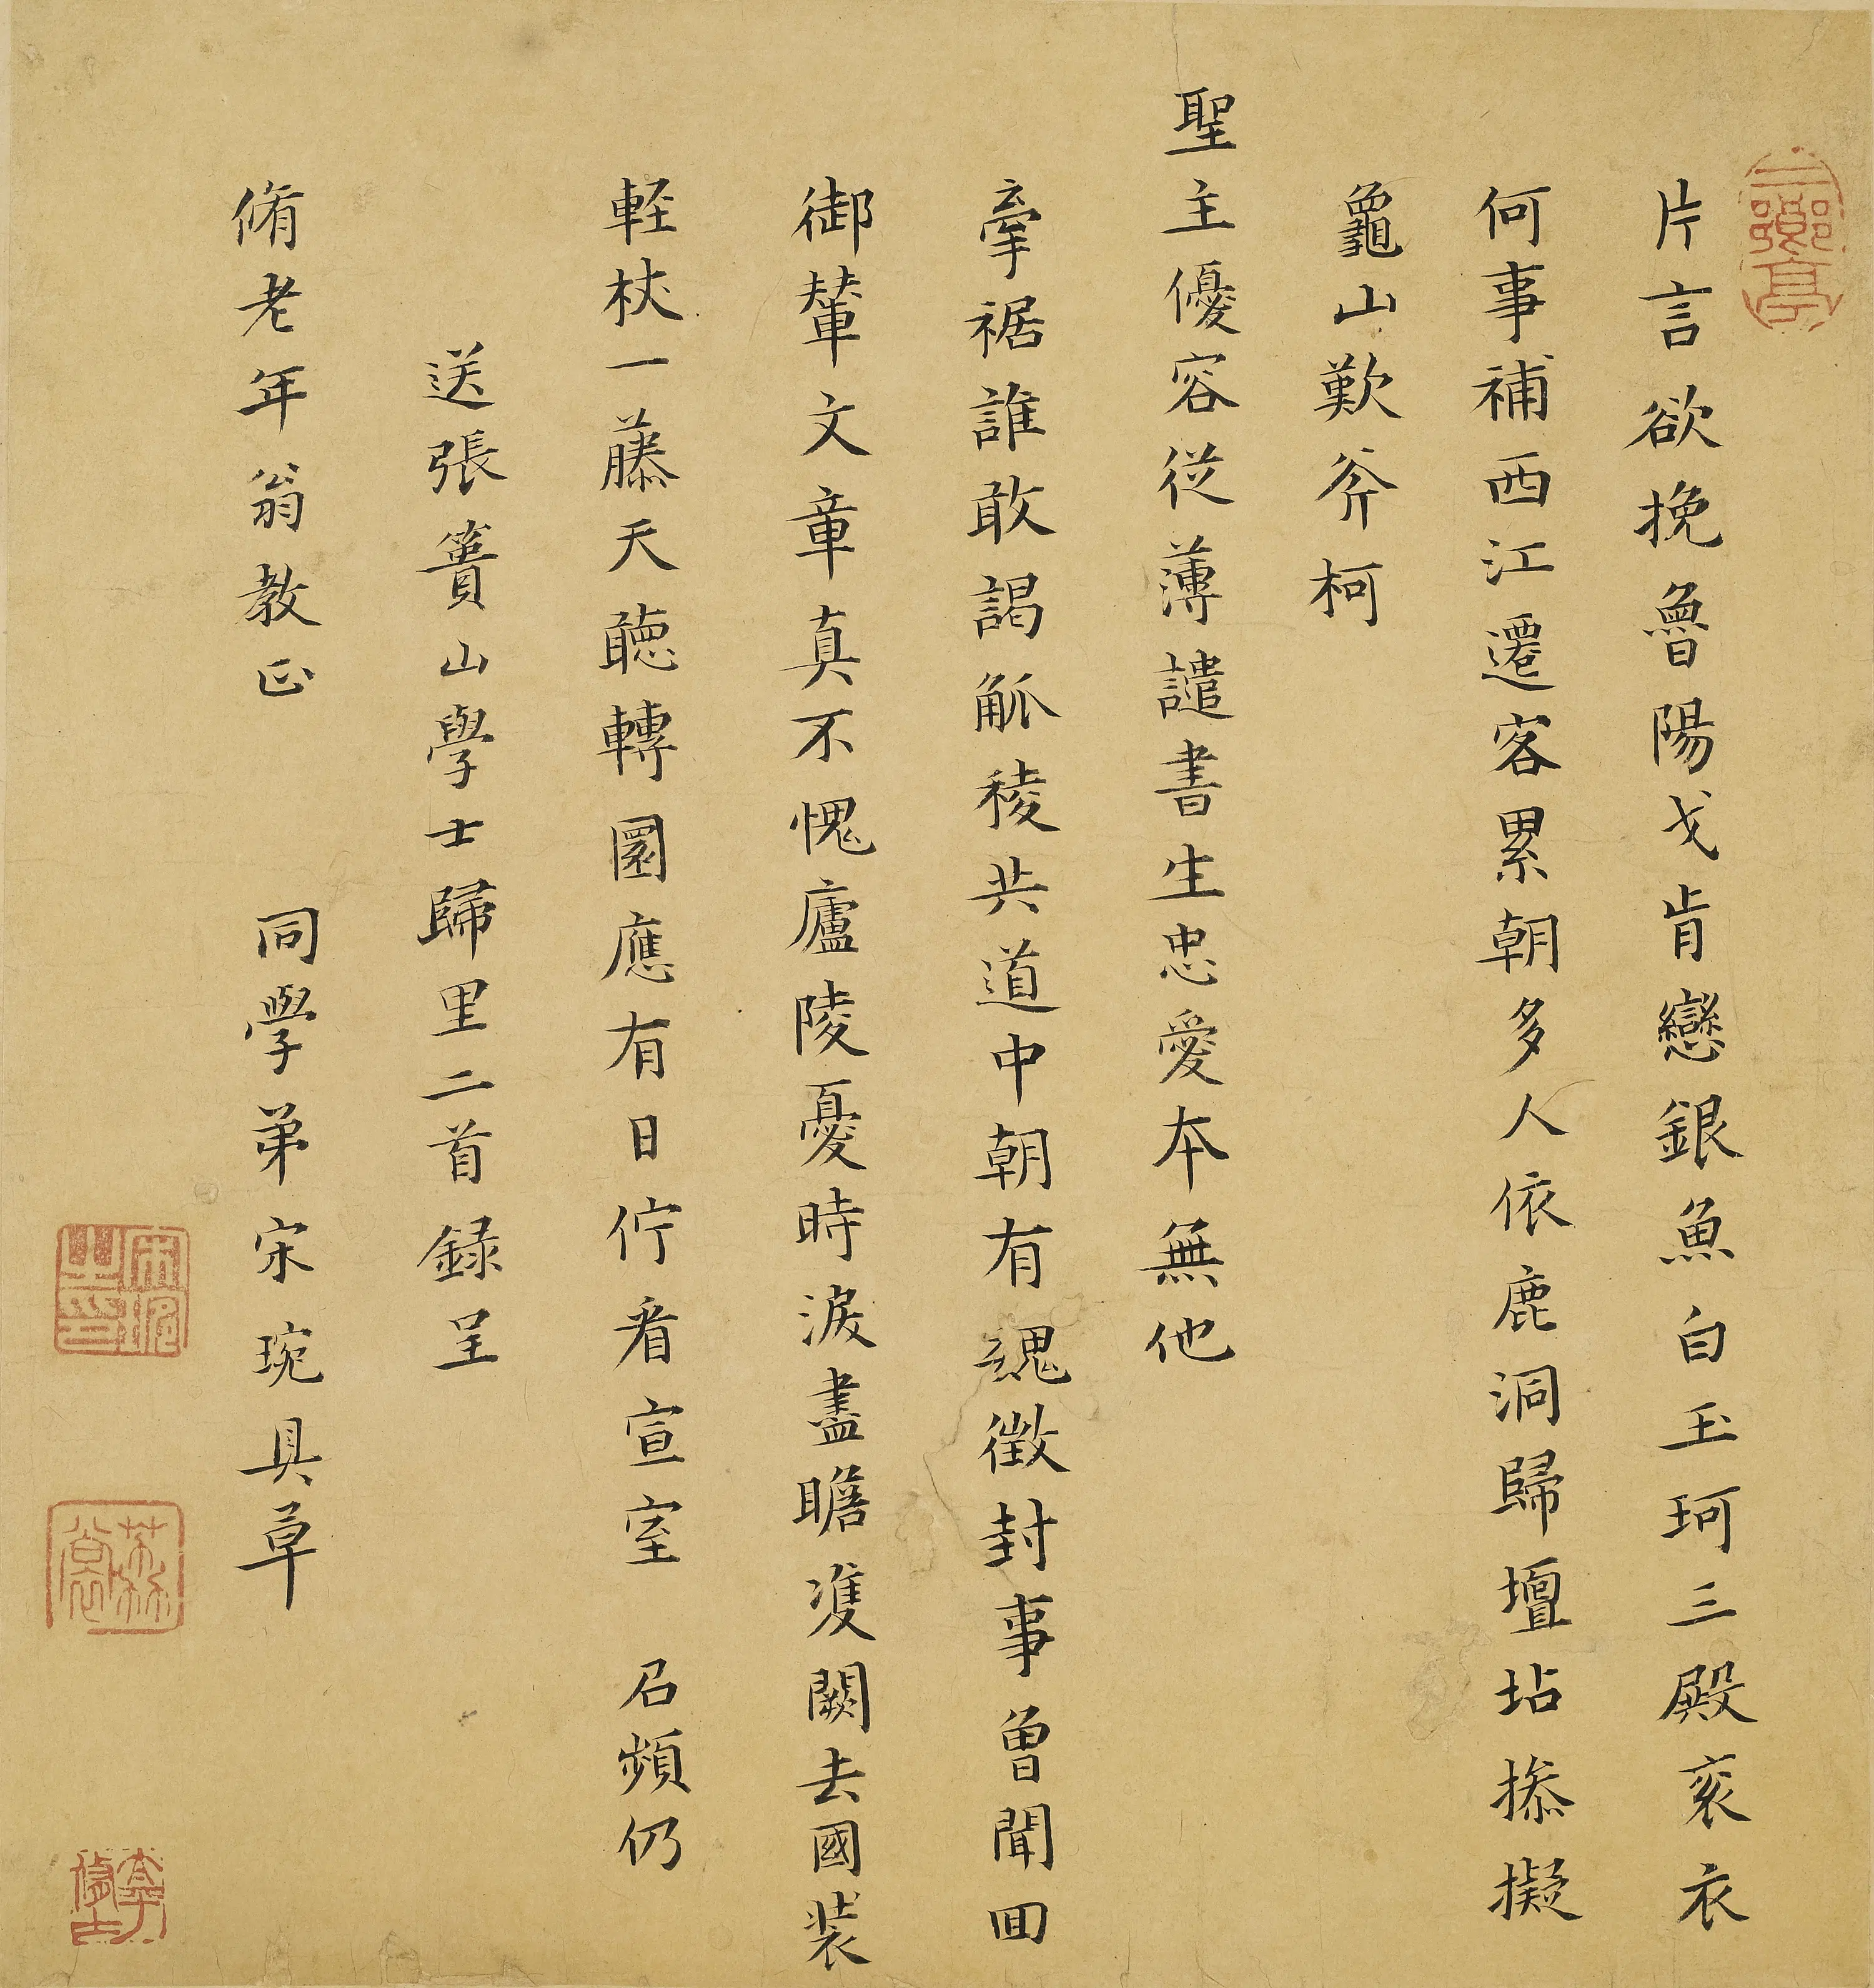 片言欲挽魯陽戈肯戀銀魚白玉珂三殿衮衣
何事補西江遷客累朝多人依鹿洞歸壇坫掭擬
龜山歎斧柯
聖主優容從薄譴書生忠愛本無他
牽裾誰敢謁觚稜共道中朝有魏徵封事曾聞回
御輦文章真不愧廬陵憂時淚盡瞻雙闕去國裝
輕杖一藤天聽轉圜應有日佇看宣室 召頻仍
送張蕢山學士歸里二首録呈
脩老年翁教正 同學弟宋琬具草
宋琬之印
荔裳